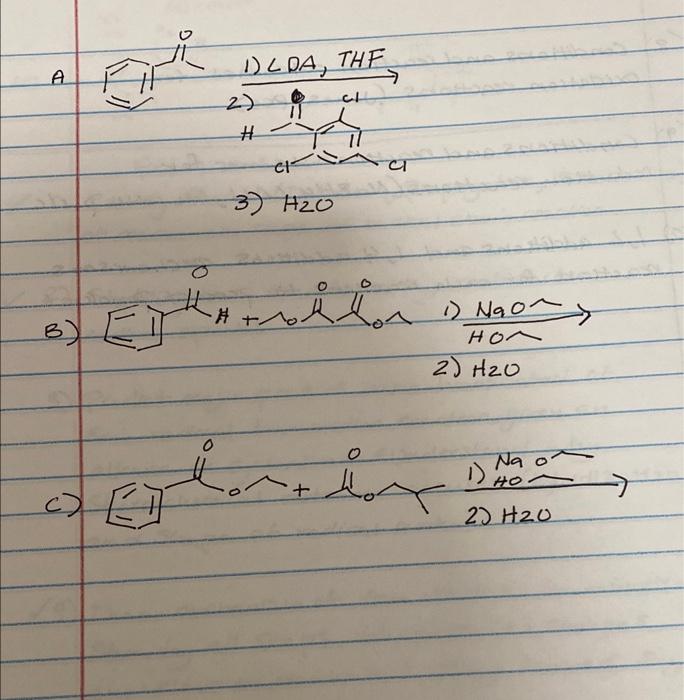 A
O
1) LDA, THF
2) O Cl
H
Cl Cl
3) H2O
B)
O
H + O O O O 1) NaO
HO
2) H2O
C)
O
O + O O 1) Na O
HO
2) H2O